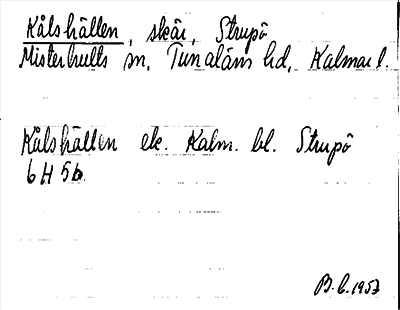 Kålshällen, skär, Strupö
Misterhults sn, Tunaläns hd, Kalmar l.
Kålshällen ek. Kalm. bl. Strupö
6H5b
B.C. 1957